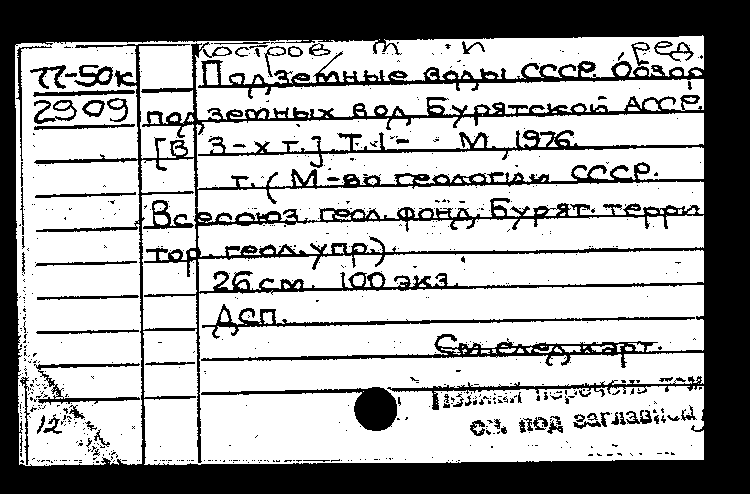 Костров, М. Н. ред.
77-50к Подземные воды СССР. Обзор
2909 подземных вод Бурятской АССР.
[В 3-х т.]. Т. 1- М., 1976.
т. (М-во геологии СССР.
Всесоюз. геол. фонд, Бурят. терри
тор. геол. упр.).
26 см. 100 экз.
Дсп.
См. след. карт.
Полный перечень том
см. под заглавием
12